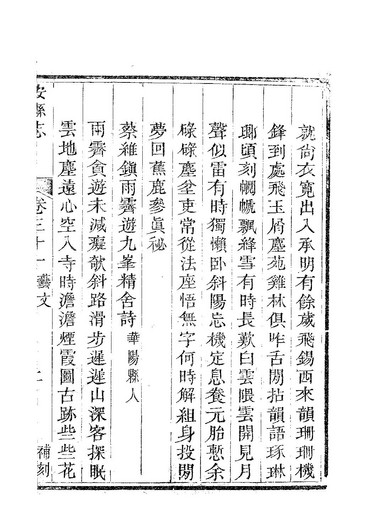 就尙衣寛出入承明有餘歲飛錫西來韻珊珊機
鋒到處飛玉屑塵苑雞林俱咋舌閒拈韻語琢琳
瑯頃刻幗幭飄絳雪有時長歎白雲隈雲開見月
聲似雷有時獨懶卧斜陽忘機定息養元胎慙余
碌碌塵坌吏常從法座悟無字何時解組身投閒
夢回蕉鹿參眞秘
蔡維鎮雨霽遊九峯精舍詩 華陽縣人
雨霽貪遊未減癡欹斜路滑步遲遲山深客探眠
雲地塵遠心空入寺時澹澹煙霞圖古跡些些花
安縣志 卷三十一 藝文 二 補刻